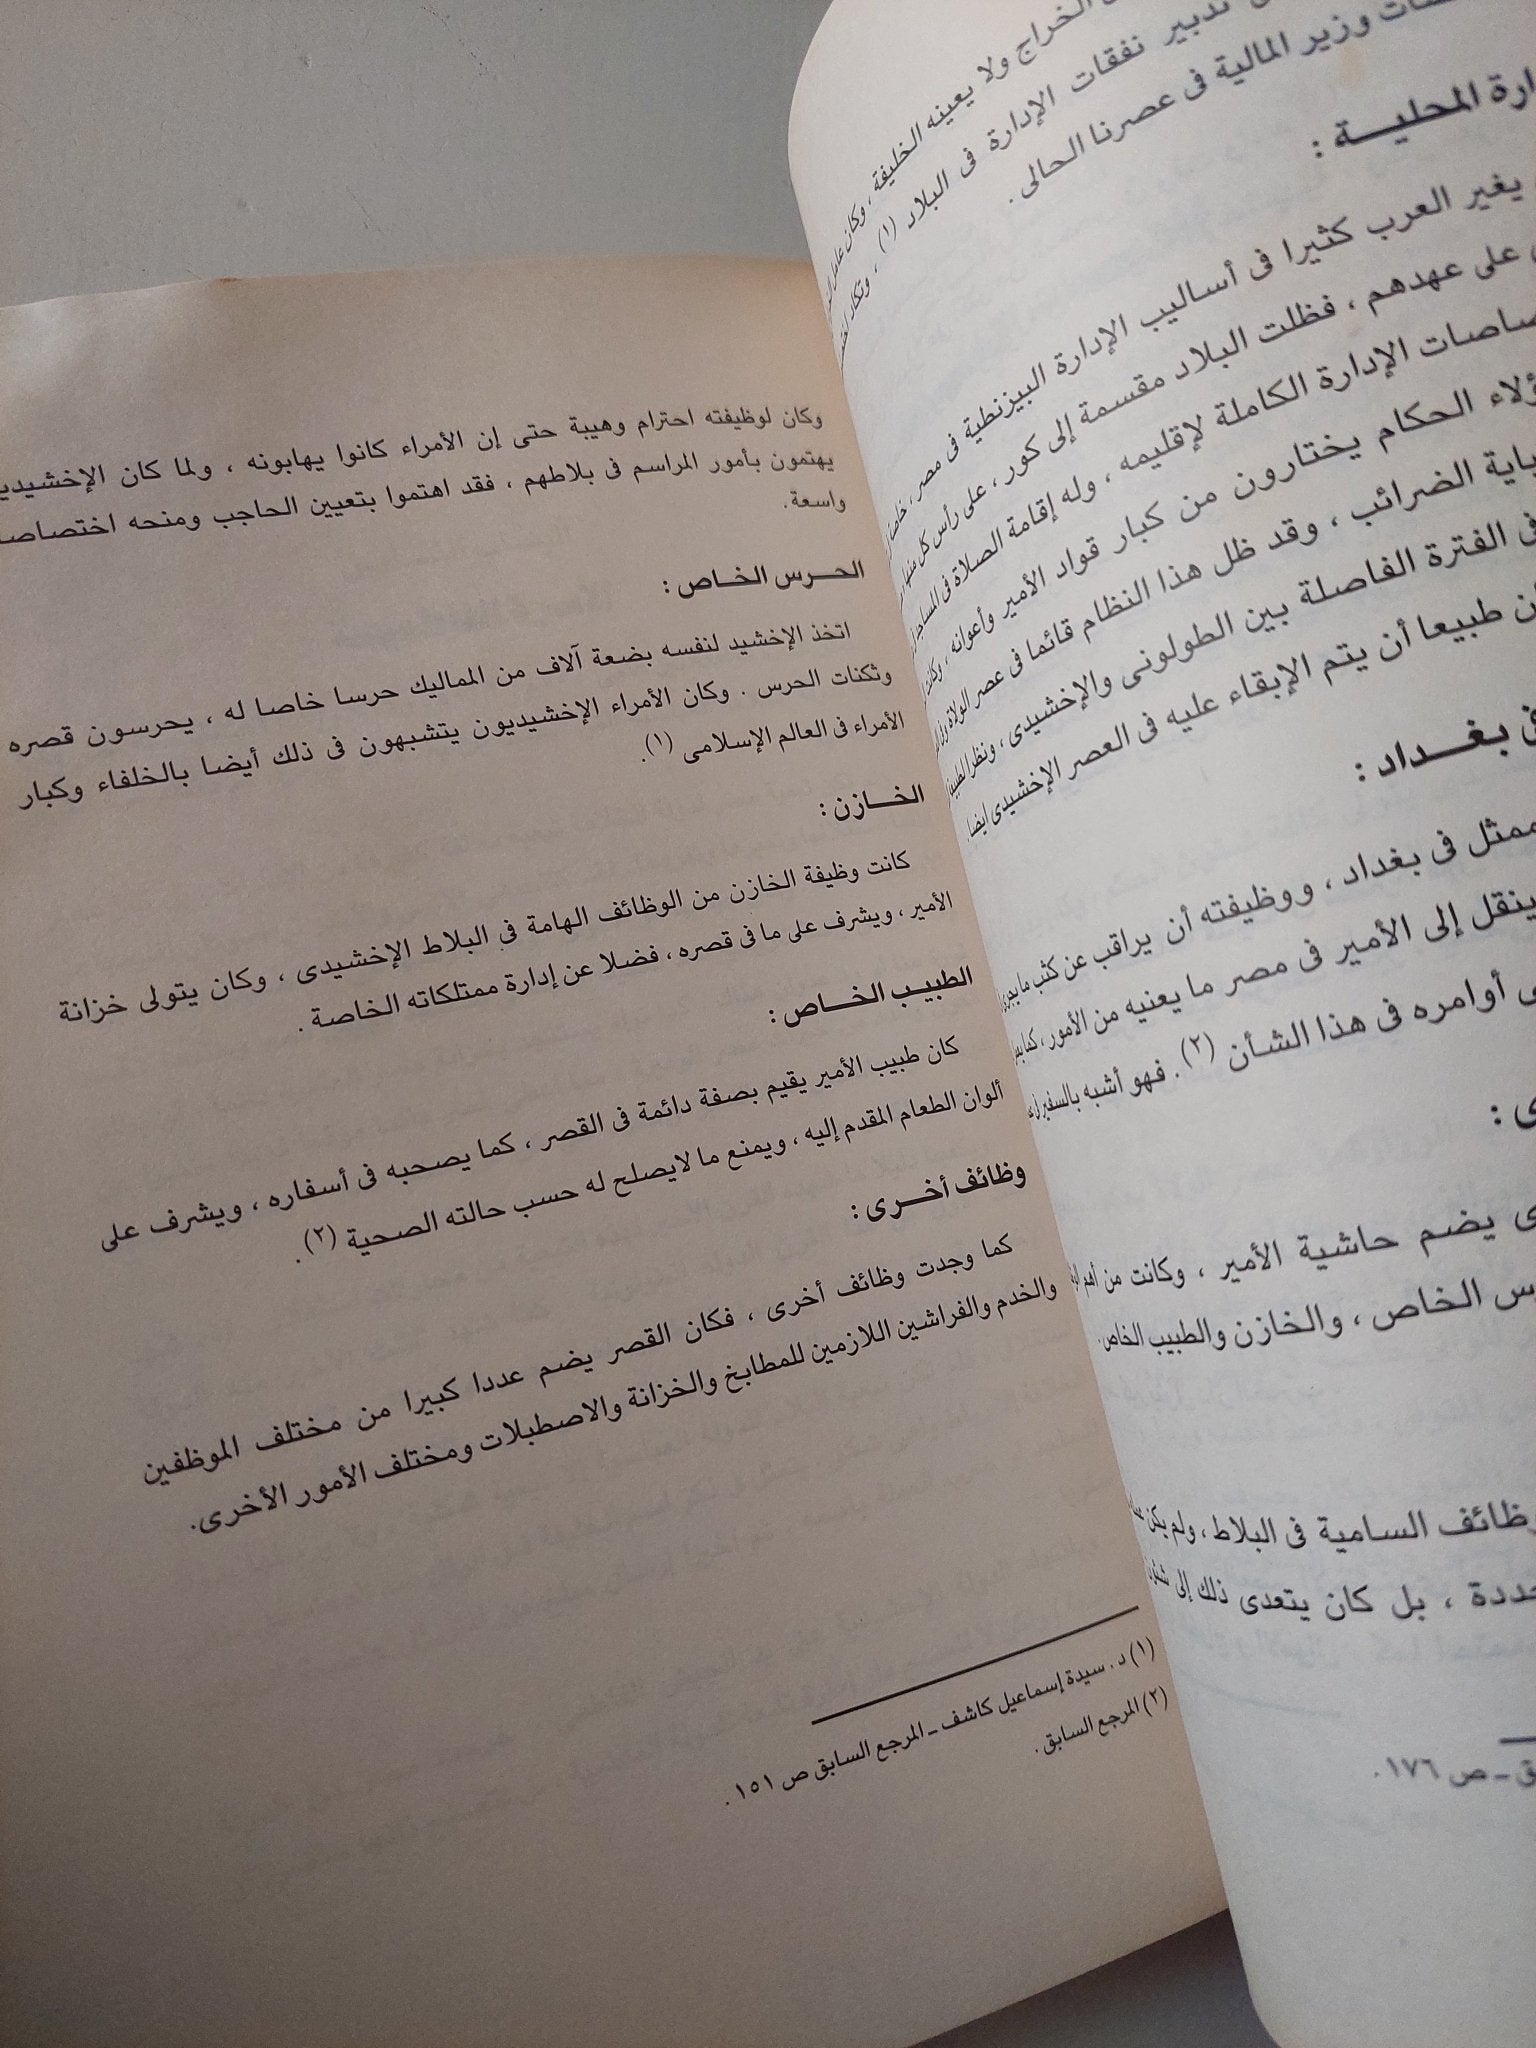 الخراج ولا يعينه الخليفة ، وكان
تدبير نفقات الإدارة فى البلاد (١) ، وتكاد
وزير المالية فى عصرنا الحالى .
المحليـــة :
يغير العرب كثيرا فى أساليب الإدارة البيزنطية فى مصر ، خاصة
على عهدهم ، فظلت البلاد مقسمة إلى كور ، على رأس كل منها
الإدارة الكاملة لإقليمه ، وله إقامة الصلاة فى المساجد
الحكام يختارون من كبار قواد الأمير وأعوانه ، وكانت
الضرائب ، وقد ظل هذا النظام قائما فى عصر الولاة
الفترة الفاصلة بين الطولونى والإخشيدى ، ونظرا
طبيعا أن يتم الإبقاء عليه فى العصر الإخشيدى أيضا .
بغـــداد :
ممثل فى بغداد ، ووظيفته أن يراقب عن كثب ما يجرى
ينقل إلى الأمير فى مصر ما يعنيه من الأمور ، كما
أوامره فى هذا الشأن (٢) . فهو أشبه بالسفير
يضم حاشية الأمير ، وكانت من أهم
الخاص ، والخازن والطبيب الخاص .
السامية فى البلاط ، ولم يكن
، بل كان يتعدى ذلك إلى شئون
ـ ص ١٧٦ .
وكان لوظيفته احترام وهيبة حتى إن الأمراء كانوا يهابونه ، ولما كان
يهتمون بأمور المراسم فى بلاطهم ، فقد اهتموا بتعيين الحاجب ومنحه
واسعة .
الحـــرس الخـــاص :
اتخذ الإخشيد لنفسه بضعة آلاف من المماليك حرسا خاصا له ، يحرسون قصره
وثكنات الحرس . وكان الأمراء الإخشيديون يتشبهون فى ذلك أيضا بالخلفاء وكبار
الأمراء فى العالم الإسلامى (١) .
الخـــازن :
كانت وظيفة الخازن من الوظائف الهامة فى البلاط الإخشيدى ، وكان يتولى خزانة
الأمير ، ويشرف على ما فى قصره ، فضلا عن إدارة ممتلكاته الخاصة .
الطبيب الخـــاص :
كان طبيب الأمير يقيم بصفة دائمة فى القصر ، كما يصحبه فى أسفاره ، ويشرف على
ألوان الطعام المقدم إليه ، ويمنع ما لايصلح له حسب حالته الصحية (٢) .
وظائف أخـــرى :
كما وجدت وظائف أخرى ، فكان القصر يضم عددا كبيرا من مختلف الموظفين
والخدم والفراشين اللازمين للمطابخ والخزانة والاصطبلات ومختلف الأمور الأخرى .
(١) د . سيدة إسماعيل كاشف ـ المرجع السابق ص ١٥١ .
(٢) المرجع السابق .